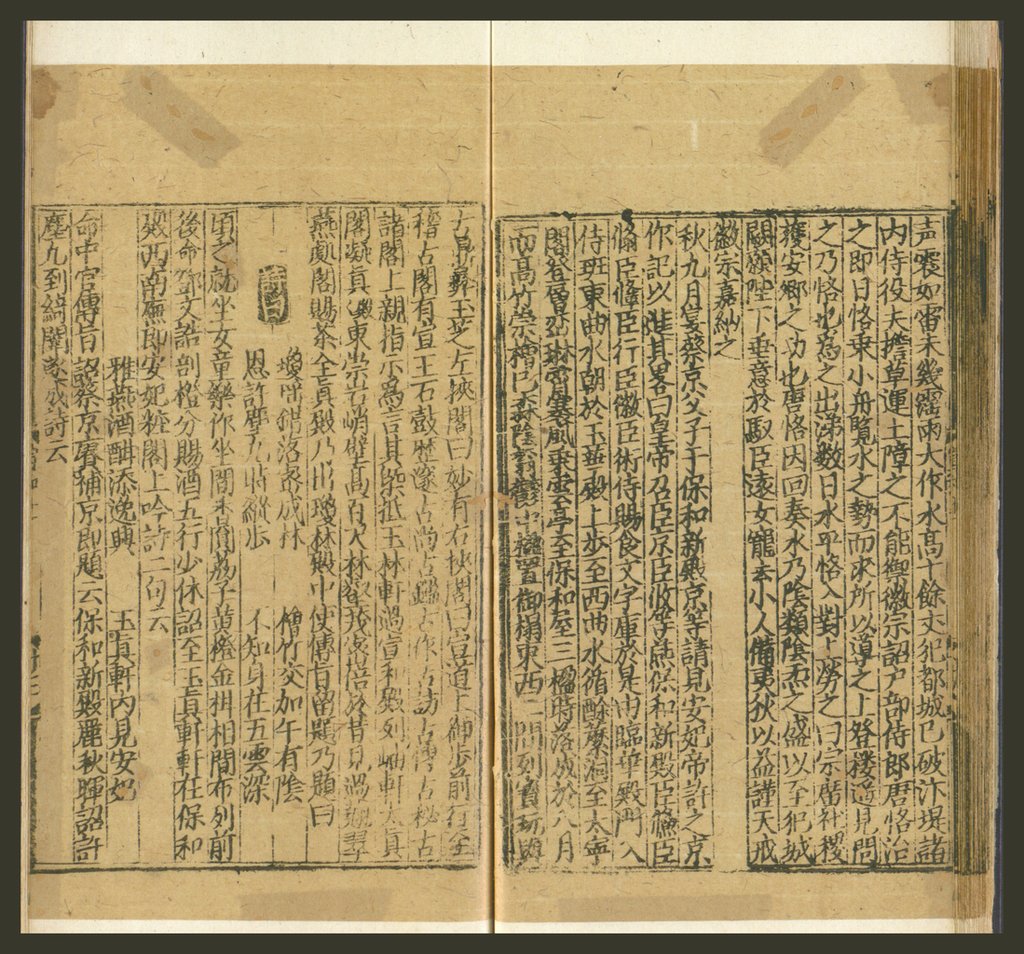 声震如雷未幾霪雨大作水高十餘丈犯都城已破汴堤諸
内侍役夫擔草運土障之不能禦徽宗詔户部侍郎唐恪治
之即日恪乘小舟覽水之勢而求所以導之上登楼遥見問
之乃恪也為之出涕数日水平恪入對上勞之曰宗廟社稷
獲安卿之功也唐恪因回奏水乃陰類陰氣之盛以至犯城
闕願陛下垂意於馭臣遠女寵去小人備夷狄以益謹天戒
徽宗嘉納之
秋九月宴蔡京父子于保和新殿京等請見安妃帝許之京
作記以進其畧曰皇帝召臣京臣攸等燕保和新殿臣鯈臣
翛臣鞗臣行臣徽臣術侍賜食文字庫於是由臨華殿門入
侍班東曲水朝於玉華殿上步至西曲水循酴醾洞至太寧
閣登層巒琳霄褰風乗雲亭至保和屋三楹時落成於八月
而高竹崇檜已森陰蓊鬱中楹置御榻東西二間列寶玩與
古鼎彝玉芝左挾閣曰妙有右挾閣曰宣道上御步前行至
稽古閣有宣王石鼓歴邃古尚古鑑古作古訪古博古秘古
諸閣上親指示為言其槩抵玉林軒過宣和殿列岫軒太真
閣凝真殿東崇岩峭壁高百尺林壑茂密倍於昔見過翹翠
燕處閣賜茶全真殿乃出瓊林殿中使傳旨留題乃題曰
瓊瑶錯落密成林 檜竹交加午有陰
恩許塵凡時縱步 不知身在五雲深
頃之就坐女童樂作坐間香圓荔子黄橙金柑相間布列前
後命鄧文誥剖橙分賜酒五行少休詔至玉真軒軒在保和
殿西南廡即安妃粧閣上吟詩二句云
雅燕酒酣添逸興 玉真軒内見安妃
命中官傳旨 詔蔡京賡補京即題云保和新殿麗秋暉詔許
塵凡到綺闈遂成詩云